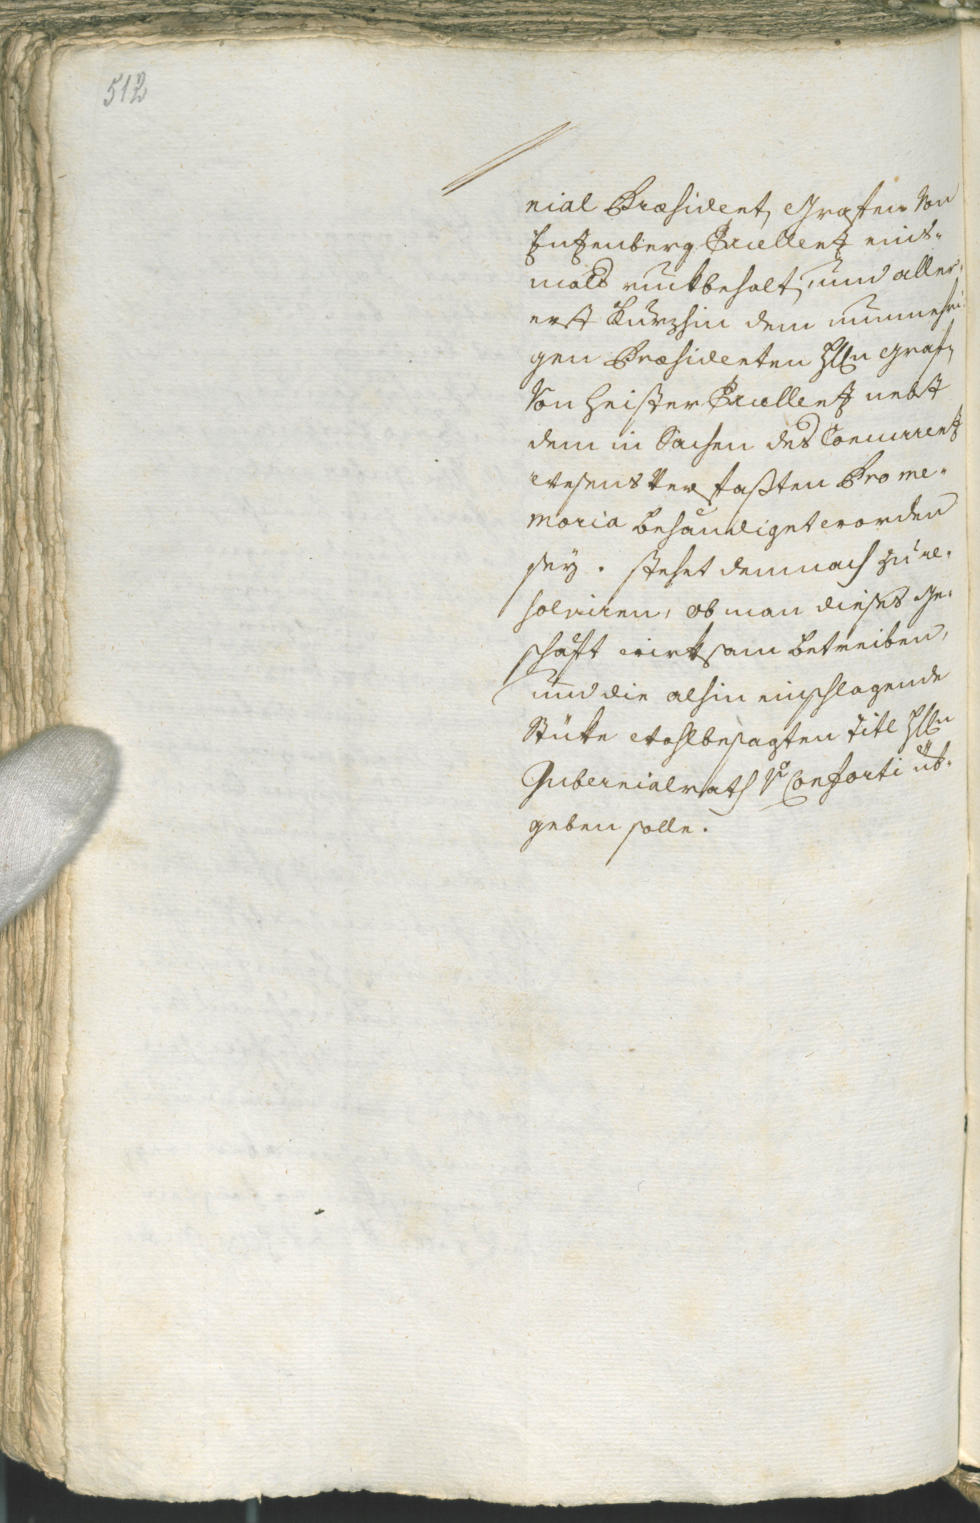 512
nial Præsident, Grafen von
Enzenberg Excellenz eins-
mals ruckbehalt, und aller-
erst kurzhin dem nunmehri-
gen Præsidenten H[er]rn Graf,
von Heister Excellenz nebst
dem in Sachen des Concurrenz
wesens verfaßten Pro me-
moria behändiget worden
sey. stehet demnach zu re-
solviren, ob man dieses Ge-
schäft wirksam betreiben,
und die alhin einschlagende
Stücke wohlbesagten Titl H[er]rn
Gubernialrath v. Conforti üb-
geben solle.